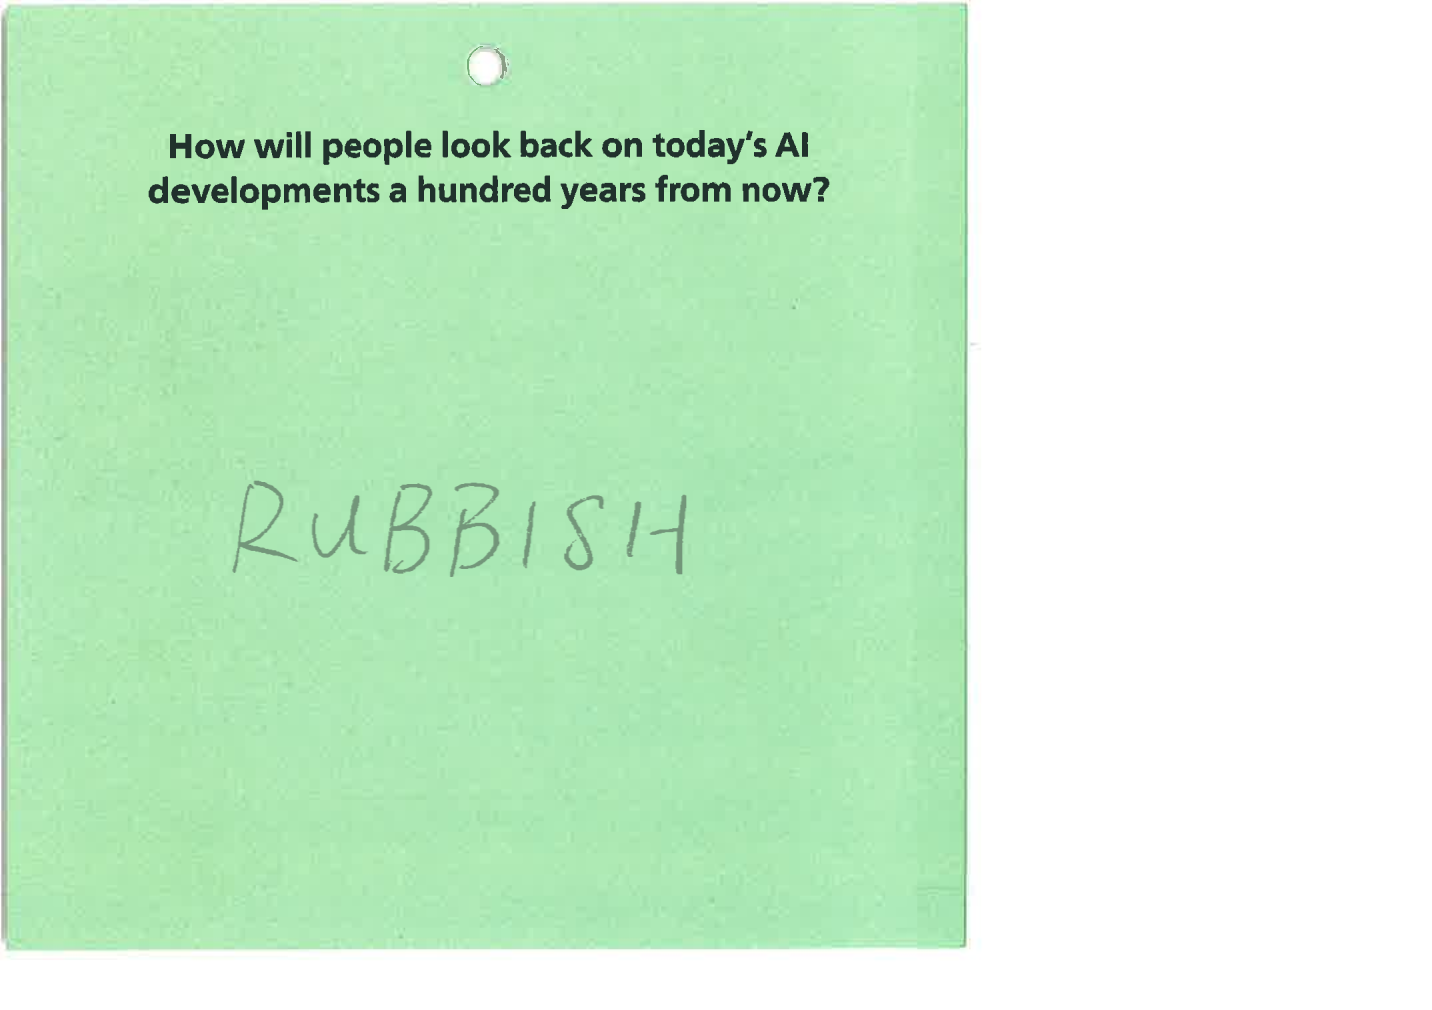 How will people look back on today's AI
developments a hundred years from now?
RUBBISH